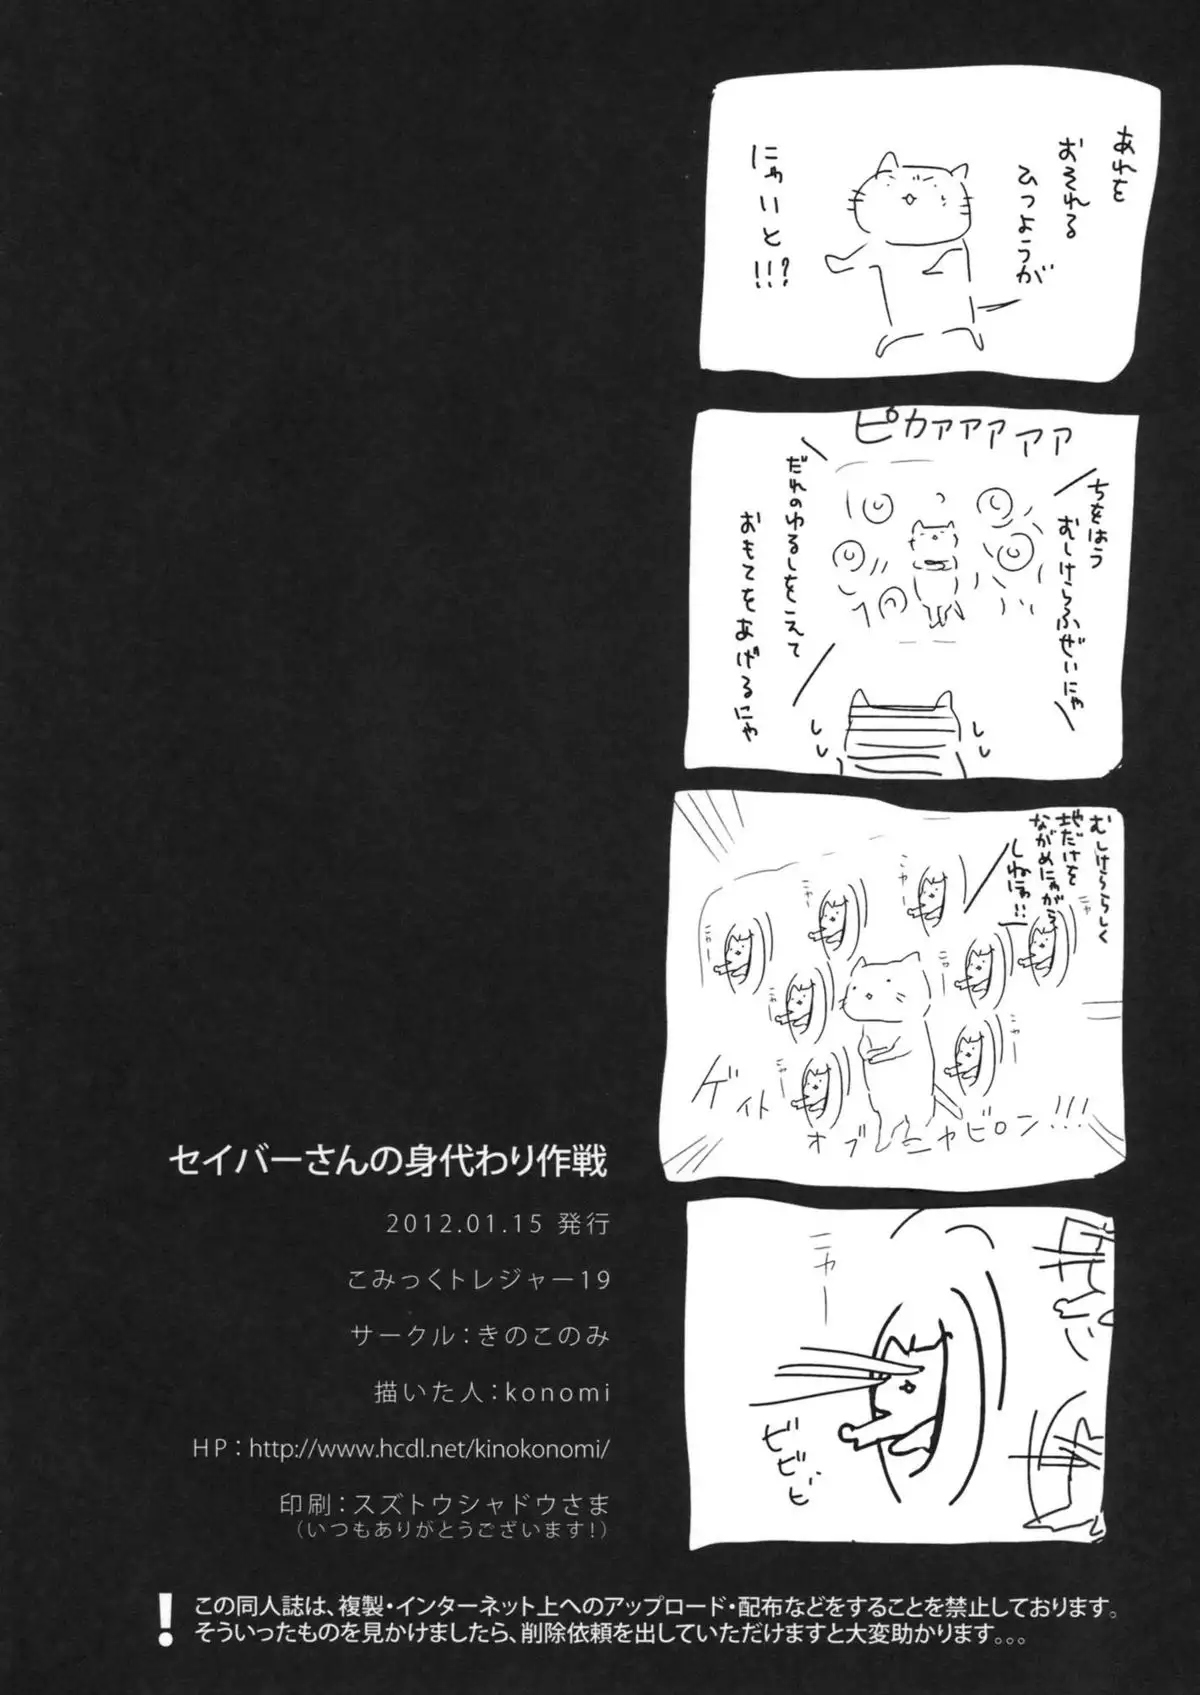 あれを
おそれる
ひつようが
にゃいと!!!?
ピカァァァァァ
ちをはう
むしけらふぜいにゃ
だれのゆるしをこえて
おもてをあげるにゃ
むしけららしく
地だけを
ながめにゃがら
しねにゃ!!
ニャー
ニャー
ニャー
ニャー
ニャー
ニャー
ニャー
ニャー
ゲイト
オブニャビロン!!!
ニャー
ビビビ
セイバーさんの身代わり作戦
2012.01.15 発行
こみっくトレジャー19
サークル：きのこのみ
描いた人：konomi
HP：http://www.hcdl.net/kinokonomi/
印刷：スズトウシャドウさま
（いつもありがとうございます！）
! この同人誌は、複製・インターネット上へのアップロード・配布などをすることを禁止しております。
そういったものを見かけましたら、削除依頼を出していただけますと大変助かります。。。